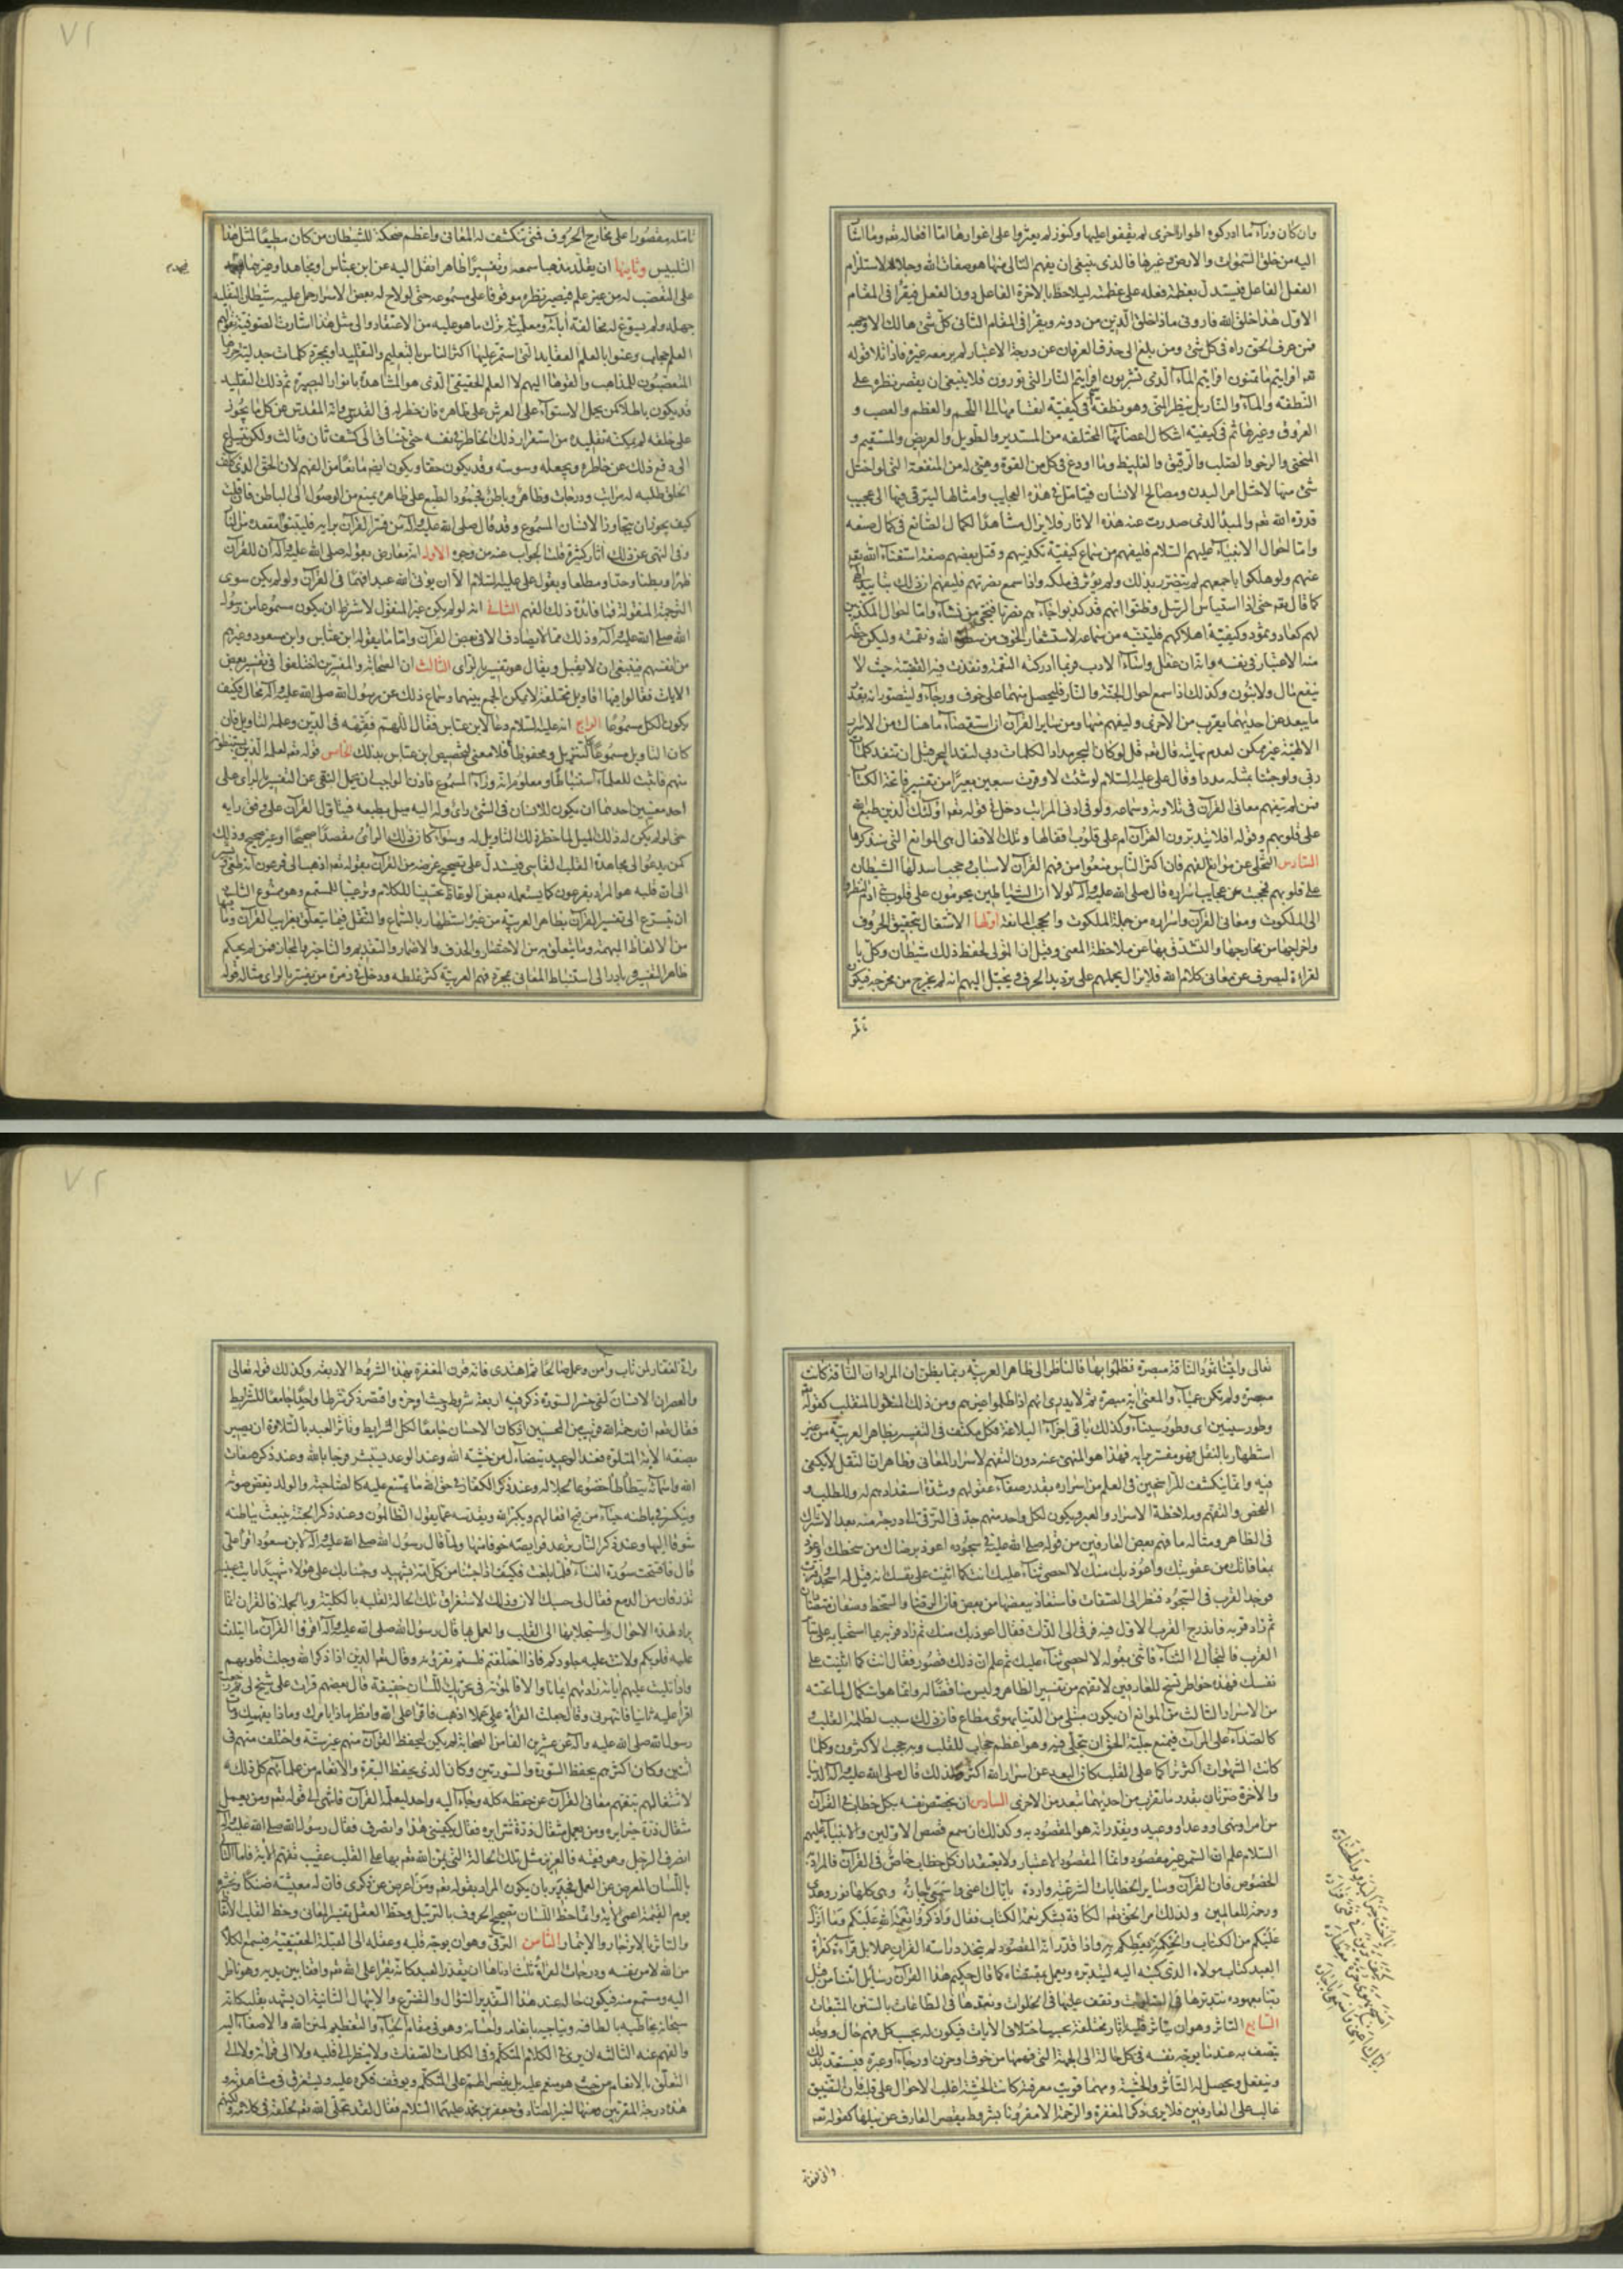 وان كان ورآء ما ادركوه اطوار اخرى لم يقفوا عليها وكنوز لم يعثروا على اغوارها امّا افعاله تعه وما اشا
اليه من خلق السموات والارض وغيرها فالذى ينبغى ان يفهم التالى منها هو صفات الله وجلاله لاستلزام
الفعل الفاعل فيستدل بعظمة فعله على عظمته ليلاحظ بالاخرة الفاعل دون الفعل فيقرأ فى المقام
الاوّل هذا خلق الله فارونى ماذا خلق الّذين من دونه ويقرأ فى المقام الثانى كلّ شئ هالك الا وجهه
فمن عرف الحق راه فى كل شئ ومن بلغ الى حذف العرفان عن درجة الاعتبار لم ير معه غيره فاذا تلا قوله
تعه افرايتم ما تمنون افرايتم المآء الّذى تشربون افرايتم النّار التى تورون فلا ينبغى ان يقصر نظره على
النطفة والمآء والنّار بل ينظر المنى وهو نطفة ثمّ فى كيفيّة انقسامها الى اللّحم والعظم والعصب و
العروق وغيرها ثمّ فى كيفيّة اشكال اعضائها المختلفة من المستدير والطّويل والعريض والمستقيم و
المنحنى والرخو والصلب والرقيق والغليظ وما اودع فى كل من القوة وهيئ له من المنفعة التى لو اختل
شئ منها لاختل امر البدن ومصالح الانسان فيتامّل فى هذه العجايب وامثالها ليترقى فيها الى عجيب
قدرة الله تعه والمبدأ الذى صدرت عنه هذه الاثار فلا يزال مشاهدًا لكمال الصّانع فى كمال صنعه
وامّا احوال الانبيآء عليهم السّلام فليفهم من سماع كيفيّة تكذيبهم وقتل بعضهم صفة استغنآء الله تعه
عنهم ولو هلكوا باجمعهم لم يتضرّر بذلك ولم يؤثر فى ملكه واذا سمع نصرتهم فليفهم ان ذلك بتاييد الهى
كما قال تعه حتى اذا استيأس الرسل وظنوا انهم قد كذبوا جآءهم نصرنا فنجى من نشآء وامّا احوال المكذبين
لهم كعاد وثمود وكيفيّة اهلاكهم فليتنبه من سماعه لاستشعار الخوف من سطوة الله ونقمته وليكن حظّه
منه الاعتبار فى نفسه وانّه ان غفل واسآء الادب فربما ادركته النقمة ونفذت فيه القضيّة حيث لا
ينفع مال ولا بنون وكذلك اذا سمع احوال الجنّة والنّار فليحصل منهما على خوف ورجآء وليتصوّر انه بقدر
ما يبعد من احديهما يقرب من الاخرى وليفهم منها ومن ساير القرآن ان استقصآء ما هناك من الاسرار
الالهيّة غير ممكن لعدم نهايته قال تعه قل لو كان البحر مدادا لكلمات ربى لنفد البحر قبل ان تنفد كلمات
ربى ولو جئنا بمثله مددا وقال على عليه السّلام لو شئت لاوقرت سبعين بعيرًا من تفسير فاتحة الكتاب
فمن لم يتفهم معانى القرآن فى تلاوته وسماعه ولو فى ادنى المراتب دخل فى قوله تعه اولئك الّذين طبع الله
على قلوبهم وقوله افلا يتدبّرون القرآن ام على قلوب اقفالها وتلك الاقفال هى الموانع التى سنذكرها
السّادس التخلّى عن موانع الفهم فان اكثر النّاس منعوا من فهم القرآن لاسباب وحجب اسدلها الشيطان
على قلوبهم فحجبت عن عجايب اسراره قال صلى الله عليه وآله لولا انّ الشياطين يحومون على قلوب بنى ادم لنظروا
الى الملكوت ومعانى القرآن واسراره من جملة الملكوت والحجب المانعة اوّلها الاشتغال بتحقيق الحروف
واخراجها من مخارجها والتشدّق بها عن ملاحظة المعنى وقيل ان المتولى لحفظ ذلك شيطان وكلّ با
لقراءة ليصرف عن معانى كلام الله فلا يزال يحملهم على ترديد الحرف ويخيّل اليهم انه لم يخرج من مخرجه فيكون
تامّله
تامّله مقصورًا على مخارج الحروف فمتى تنكشف له المعانى واعظم ضحكة للشيطان من كان مطيعًا لمثل هذا
التلبيس وثانيها ان يقلّد مذهبا سمعه وتفسيرًا ظاهرا نقل اليه عن ابن عبّاس او مجاهد او غيرهما
على التعصّب له من غير علم فيصير نظره موقوفا على مسموعه حتى لو لاح له بعض الاسرار حمل عليه شيطان التقليد
حمله ولم يسوّغ له مخالفة آبائه ومعلّميه فى ترك ما هو عليه من الاعتقاد والى مثل هذا اشارت الصّوفيّة بقولهم
العلم حجاب وعنوا بالعلم العقايد التى استمرّ عليها اكثر النّاس بالتعليم والتقليد او بمجرّد كلمات جدليّة حرّرها
المتعصّبون للمذاهب والقوها اليهم لا العلم الحقيقى الّذى هو المشاهدة بانوار البصيرة ثم ذلك التقليد
قد يكون باطلا كمن يحمل الاستوآء على العرش على ظاهره فان خطر له فى القدّوس انه المقدّس عن كل ما يجوز
على خلقه لم يمكنه تقليده من استقرار ذلك الخاطر فى نفسه حتى ينساق الى كشف ثان وثالث ولكن يسارع
الى دفع ذلك عن خاطره ويجعله وسوسته وقد يكون حقا ويكون ايضًا مانعًا من الفهم لان الحق الذى كلف
الخلق طلبه له مراتب ودرجات وظاهر وباطن فجمود الطّبع على ظاهره يمنع من الوصول الى الباطن فان قلت
كيف يجوز ان يتجاوز الانسان المسموع وقد قال صلى الله عليه وآله من فسّر القرآن برايه فليتبوّأ مقعده من النّار
وفى النهى عن ذلك آثار كثيرة قلت الجواب عنه من وجوه الاوّل انه معارض بقوله صلى الله عليه وآله ان للقرآن
ظهرًا وبطنا وحدّا ومطلعا وبقول على عليه السّلام الا ان يؤتى الله عبدا فهمًا فى القرآن ولو لم يكن سوى
الترجمة المنقولة فما فائدة ذلك الفهم الثانى انه لو لم يكن غير المنقول لاشترط ان يكون مسموعًا من رسول
الله صلى الله عليه وآله وذلك ممّا لا يصادف الا فى بعض القرآن وامّا ما يقوله ابن عبّاس وابن مسعود وغيرهم
من انفسهم فينبغى ان لا يقبل ويقال هو تفسير بالراى الثالث ان الصحابة والمفسّرين اختلفوا فى تفسير بعض
الايات فقالوا فيها اقاويل مختلفة لا يمكن الجمع بينها وسماع ذلك من رسول الله صلى الله عليه وآله محال فكيف
يكون الكل مسموعًا الرابع انه عليه السّلام دعا لابن عبّاس فقال اللهم فقّهه فى الدّين وعلّمه التاويل فان
كان التاويل مسموعًا كالتنزيل ومحفوظا فلا معنى لتخصيص ابن عبّاس بذلك الخامس قوله تعه لعلمه الّذين يستنبطونه
منهم فاثبت للعلمآء استنباطًا ومعلوم انه ورآء المسموع فاذن الواجب ان يحمل النهى عن التفسير بالراى على
احد معنيين احدهما ان يكون للانسان فى الشئ راى وله اليه ميل بطبعه فيتاوّل القرآن على وفق رايه
حتى لو لم يكن له ذلك الميل لما خطر ذلك التاويل له وسوآء كان ذلك الراى مقصدًا صحيحًا او غير صحيح وذلك
كمن يدعو الى مجاهدة القلب القاسى فيستدلّ على تصحيح غرضه من القرآن بقوله تعه اذهبا الى فرعون انه طغى ويشير
الى ان قلبه هو المراد بفرعون كما يستعمله بعض الوعّاظ تحسينا للكلام وترغيبا للمستمع وهو ممنوع الثانى
ان يتسرّع الى تفسير القرآن بظاهر العربيّة من غير استظهار بالسّماع والنّقل فيما يتعلّق بغرايب القرآن وما
فيها من الالفاظ المبهمة وما يتعلّق به من الاختصار والحذف والاضمار والتقديم والتاخير والمجاز فمن لم يحكم
ظاهر التفسير وبادر الى استنباط المعانى بمجرّد فهم العربيّة كثر غلطه ودخل فى زمرة من يفسّر بالراى مثاله قوله
تعالى وآتينا ثمود النّاقة مبصرة فظلموا بها فالناظر الى ظاهر العربيّة ربما يظن ان المراد ان النّاقة كانت
مبصرة ولم تكن عميآء والمعنى آية مبصرة ثم لا يدرى انهم اذا ظلموا غيرهم ومن ذلك المنقول المنقلب كقوله تعه
وطور سينين اى وطور سينآء وكذلك باقى اجزآء البلاغة فكل مكتف فى التفسير بظاهر العربيّة من غير
استظهار بالنقل فهو مفسّر برايه فهذا هو المنهى عنه دون التفهم لاسرار المعانى وظاهر ان النّقل لا يكفى
فيه وانما ينكشف للرّاسخين فى العلم من اسراره بقدر صفآء عقولهم وشدّة استعدادهم له وللطلب و
الفحص والتفهّم وملاحظة الاسرار والعبر ويكون لكل واحد منهم حد فى الترقى الى درجة منه بعد الاشتراك
فى الظاهر ومثاله ما فهم بعض العارفين من قوله صلى الله عليه فى سجوده اعوذ برضاك من سخطك واعوذ
بمعافاتك من عقوبتك واعوذ بك منك لا احصى ثنآء عليك انت كما اثنيت على نفسك انه قيل له اسجد واقترب
فوجد القرب فى السّجود فنظر الى الصّفات فاستعاذ ببعضها من بعض فان الرضا والسخط وصفان متضادّان
ثم زاد قربه فاندرج القرب الاوّل فيه فرقى الى الذّات فقال اعوذ بك منك ثم زاد قربه بما استحيا به على بساط
القرب فالتجأ الى الثنآء فاثنى بقوله لا احصى ثنآء عليك ثم علم ان ذلك قصور فقال انت كما اثنيت على
نفسك فهذه خواطر تسنح للعارفين لا تفهم من تفسير الظاهر وليس مناقضًا له وانما هو استكمال لما تحته
من الاسرار الثالث من الموانع ان يكون مبتلى من الدنيا بهوى مطاع فان ذلك سبب لظلمة القلب و
كالصدآء على المرآت فيمنع جليّة الحق ان يتجلّى فيه وهو اعظم حجاب للقلب وبه حجب الاكثرون وكلّما
كانت الشهوات اكثر تراكمًا على القلب كان البعد عن اسرار الله اكثر ولذلك قال صلى الله عليه وآله الدنيا
والاخرة ضرّتان بقدر ما تقرب من احديهما تبعد من الاخرى السّادس ان يخصّص نفسه بكل خطاب فى القرآن
من امر او نهى او وعد او وعيد ويقدّر انه هو المقصود به وكذلك ان سمع قصص الاوّلين والانبيآء عليهم
السّلام علم ان السّمر غير مقصود وانما المقصود الاعتبار ولا يعتقد ان كل خطاب خاصّ فى القرآن فالمراد
الخصوص فان القرآن وساير الخطابات الشرعيّة واردة باياك اعنى واسمعى يا جارة وهى كلها نور وهدى
ورحمة للعالمين ولذلك امر الحق تعه الكافة بشكر نعمة الكتاب فقال واذكروا نعمة الله عليكم وما انزل
عليكم من الكتاب والحكمة يعظكم به واذا قدّر انه المقصود لم يتّخذ دراسة القرآن عملا بل قراءة كقراءة
العبد كتاب مولاه الّذى كتبه اليه ليتدبّره ويعمل بمقتضاه كما قال حكيم هذا القرآن رسايل اتتنا من قبل
ربنا بعهوده نتدبّرها فى الصّلوات ونقف عليها فى الخلوات ونعدّها فى الطاعات بالسنن المتّبعات
السّابع التاثّر وهو ان يتاثّر قلبه بآثار مختلفة بحسب اختلاف الايات فيكون له بحسب كل فهم حال ووجد
يتّصف به عندما يوجّه نفسه فى كل حالة الى الجهة التى فهمها من خوف او حزن او رجآء او عبرة فيستعدّ بذلك
وينفعل ويحصل له التاثّر والخشية ومهما قويت معرفته كانت الخشية اغلب الاحوال على قلبه فان التضييق
غالب على العارفين فلا يرى ذكر المغفرة والرّحمة الا مقرونا بشروط يقصر العارف عن نيلها كقوله تعه
وانى لغفّار
وانّى لغفّار لمن تاب وآمن وعمل صالحًا ثمّ اهتدى فانه قرن المغفرة بهذه الشروط الاربعة وكذلك قوله تعالى
والعصر انّ الانسان لفى خسر السّورة ذكر فيه اربعة شروط وحيث اوجز واختصر ذكر شرطا واحدًا جامعًا للشرايط
فقال تعه ان رحمة الله قريب من المحسنين اذ كان الاحسان جامعًا لكل الشرايط وتاثّر العبد بالتلاوة ان يصير
بصفة الآية المتلوّة فعند الوعيد يتضآءل من خشية الله وعند الوعد يستبشر فرحا بالله وعند ذكر صفات
الله واسمآئه يتطأطأ خضوعًا لجلاله وعند ذكر الكفار فى حق الله ما يمتنع عليه كالصّاحبة والولد يغضّ صوته
وينكسر فى باطنه حيآء من قبح افعالهم ويكبّر الله ويقدّسه عمّا يقول الظّالمون وعند ذكر الجنّة ينبعث بباطنه
شوقا اليها وعند ذكر النّار ترتعد فرايصه خوفا منها ولمّا قال رسول الله صلى الله عليه وآله لابن مسعود اقرأ على
قال فافتتحت سورة النّسآء فلمّا بلغت فكيف اذا جئنا من كلّ امّة بشهيد وجئنا بك على هؤلاء شهيدًا رايت عينيه
تذرفان من الدمع فقال لى حسبك الان وذلك لاستغراق تلك الحالة لقلبه بالكليّة وبالجملة فالقران انما
يراد لهذه الاحوال واستجلابها الى القلب والعمل بها قال رسول الله صلى الله عليه وآله اقرؤا القرآن ما ائتلفت
عليه قلوبكم ولانت عليه جلودكم فاذا اختلفتم فلستم تقرؤنه وقال تعه الّذين اذا ذكر الله وجلت قلوبهم
واذا تليت عليهم اياته زادتهم ايمانا والا فالمؤنة فى تحريك اللّسان خفيفة قال بعضهم قرات على شيخ لى ثم رجعت
اقرأ عليه ثانيا فانتهرنى وقال جعلت القرآن على عملا اذهب فاقرأ على الله وانظر ماذا يامرك وماذا ينهيك ومات
رسول الله صلى الله عليه وآله عن عشرين الفا من الصحابة لم يكن يحفظ القرآن منهم غير ستة واختلف منهم فى
اثنين وكان اكثرهم يحفظ السّورة والسّورتين وكان الّذى يحفظ البقرة والانعام من علمائهم كل ذلك
لاشتغالهم بتفهّم معانى القرآن عن حفظه كله وجآء اليه واحد ليعلّمه القرآن فانتهى الى قوله تعه ومن يعمل
مثقال ذرة خيرا يره ومن يعمل مثقال ذرّة شرّا يره فقال يكفينى هذا وانصرف فقال رسول الله صلى الله عليه وآله
انصرف الرجل وهو فقيه فالعزيز مثل تلك الحالة التى يمنّ الله تعه بها على القلب عقيب تفهّم الآية فامّا التالى
باللّسان المعرض عن العمل فجدير بان يكون المراد بقوله تعه ومن اعرض عن ذكرى فان له معيشة ضنكًا ونحشره
يوم القيمة اعمى الآية وانما حظّ اللّسان تصحيح الحروف بالترتيل وحظّ العقل تفسير المعانى وحظّ القلب الاتّعاظ
والتاثّر بالانزجار والايتمار الثّامن الترقّى وهو ان يوجّه قلبه وعقله الى القبلة الحقيقيّة فيسمع الكلام
من الله لا من نفسه ودرجات القرآة ثلث ادناها ان يقدّر العبد كانّه يقرأ على الله تعه واقفا بين يديه وهو ناظر
اليه ومستمع منه فيكون حاله عند هذا التقدير السّؤال والتضرّع والابتهال الثانية ان يشهد بقلبه كانّه
سبحانه يخاطبه بالطافه ويناجيه بانعامه واحسانه وهو فى مقام الحيآء والتعظيم لمنن الله والاصغآء اليه
والفهم عنه الثالثة ان يرى فى الكلام المتكلّم وفى الكلمات الصّفات ولا ينظر الى قلبه ولا الى قرائته ولا الى
التعلّق بالانعام من حيث هو منعم عليه بل يقصر الهمّ على المتكلّم ويوقف فكره عليه ويستغرق فى مشاهدته و
هذه درجة المقرّبين وعنها اخبر الصّادق جعفر بن محمد عليهما السّلام فقال لقد تجلّى الله تعه لخلقه فى كلامه ولكنهم